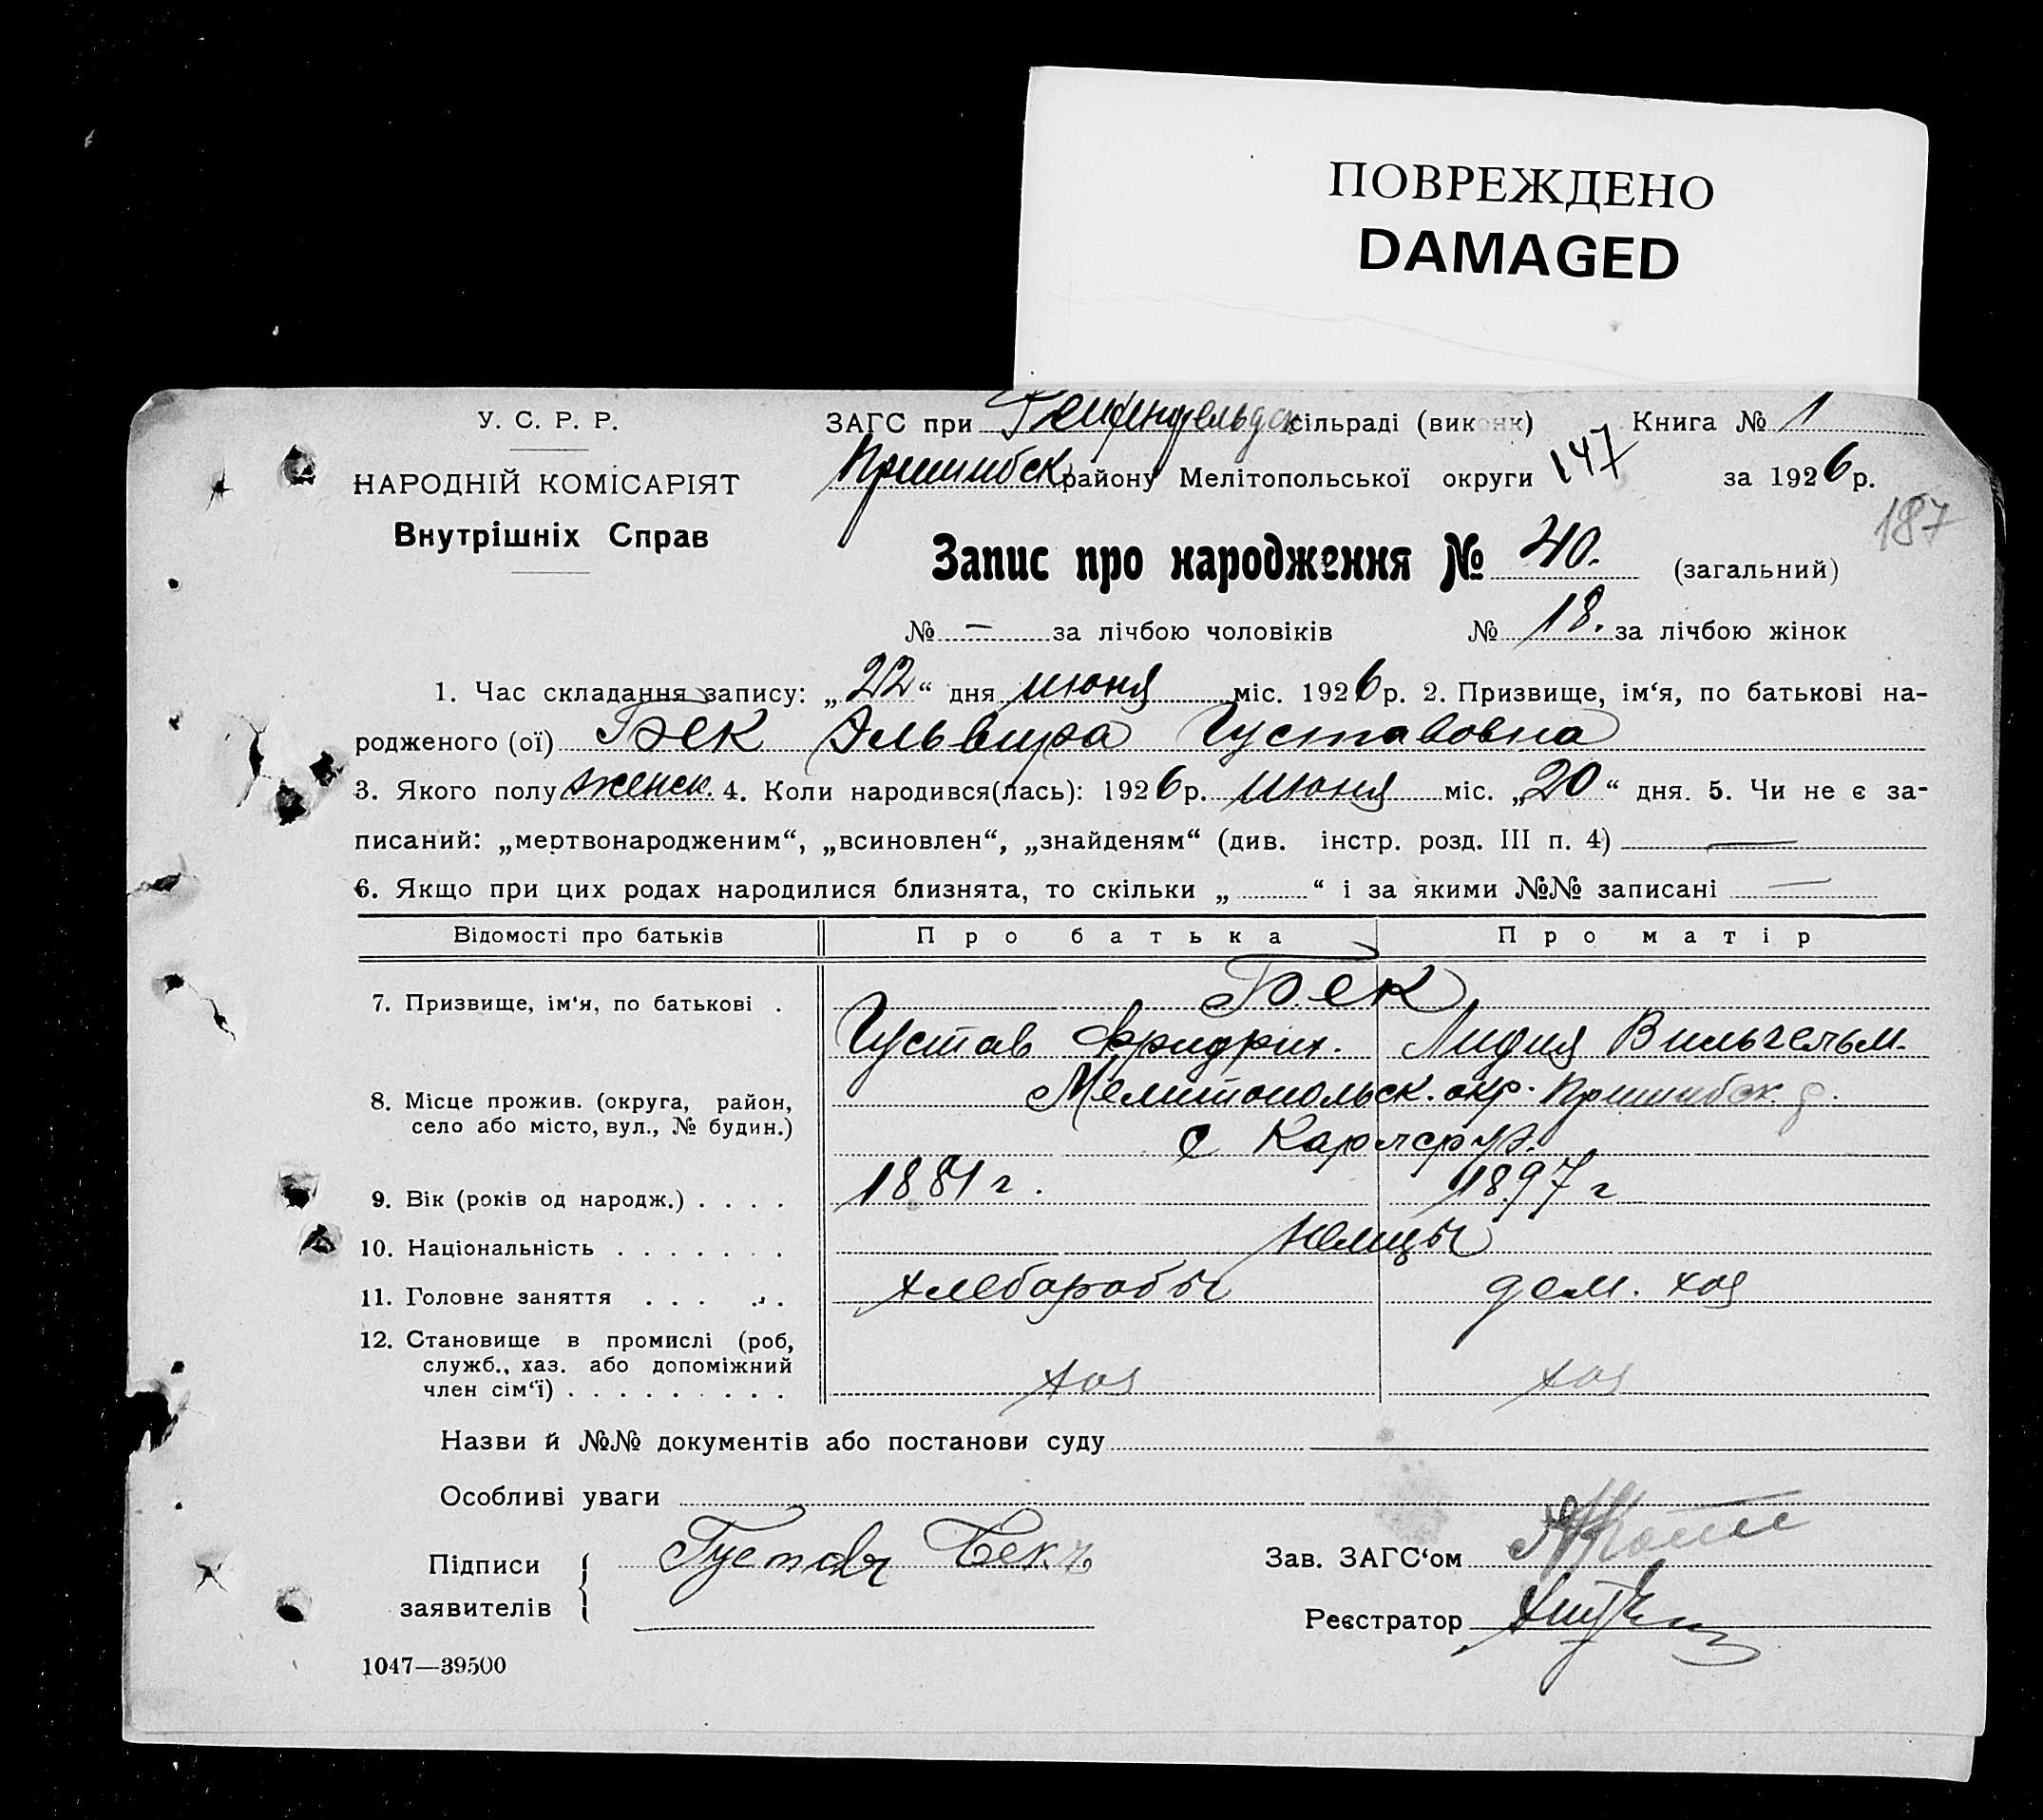 ПОВРЕЖДЕНО
DAMAGED
У. С. Р. Р.
НАРОДНІЙ КОМІСАРІЯТ
Внутрішніх Справ
ЗАГС при сільраді (виконк) Книга № 1
Пришибск району Мелітопольської округи 147 за 1926 р.
187
Запис про народження № 40. (загальний)
№ — за лічбою чоловіків № 18. за лічбою жінок
1. Час складання запису: „22“ дня июня міс. 1926 р. 2. Призвище, ім‘я, по батькові на-
родженого (ої) Бек Эльвира Густавовна
3. Якого полу женск. 4. Коли народився(лась): 1926 р. июня міс. „20“ дня. 5. Чи не є за-
писаний: „мертвонародженим“, „всиновлен“, „знайденям“ (див. інстр. розд. III п. 4) —
6. Якщо при цих родах народилися близнята, то скільки „ “ і за якими №№ записані —
Відомості про батьків Про батька Про матір
7. Призвище, ім‘я, по батькові . Бек
Густав Фридрих. Лидия Вильгельм.
8. Місце прожив. (округа, район, село або місто, вул., № будин.) Мелитопольск. окр. Пришибск. р.
с Карлсруэ.
9. Вік (років од народж.) . . . . 1881 г. 1897 г
10. Національність . . . . . . . Немцы
11. Головне заняття . . . . . хлеборобы дом. хоз
12. Становище в промислі (роб,
служб., хаз. або допоміжний
член сім‘ї) . . . . . . . . . хоз хоз
Назви й №№ документів або постанови суду
Особливі уваги
Підписи заявителів Густав Бекъ
Зав. ЗАГС‘ом
Реєстратор
1047—39500